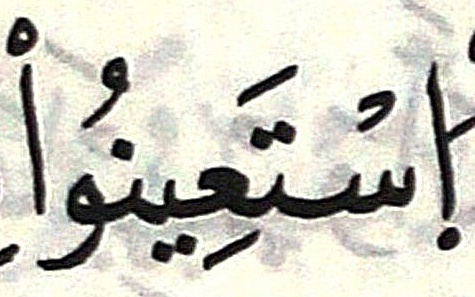 اِ۪سْتَعِينُواْ